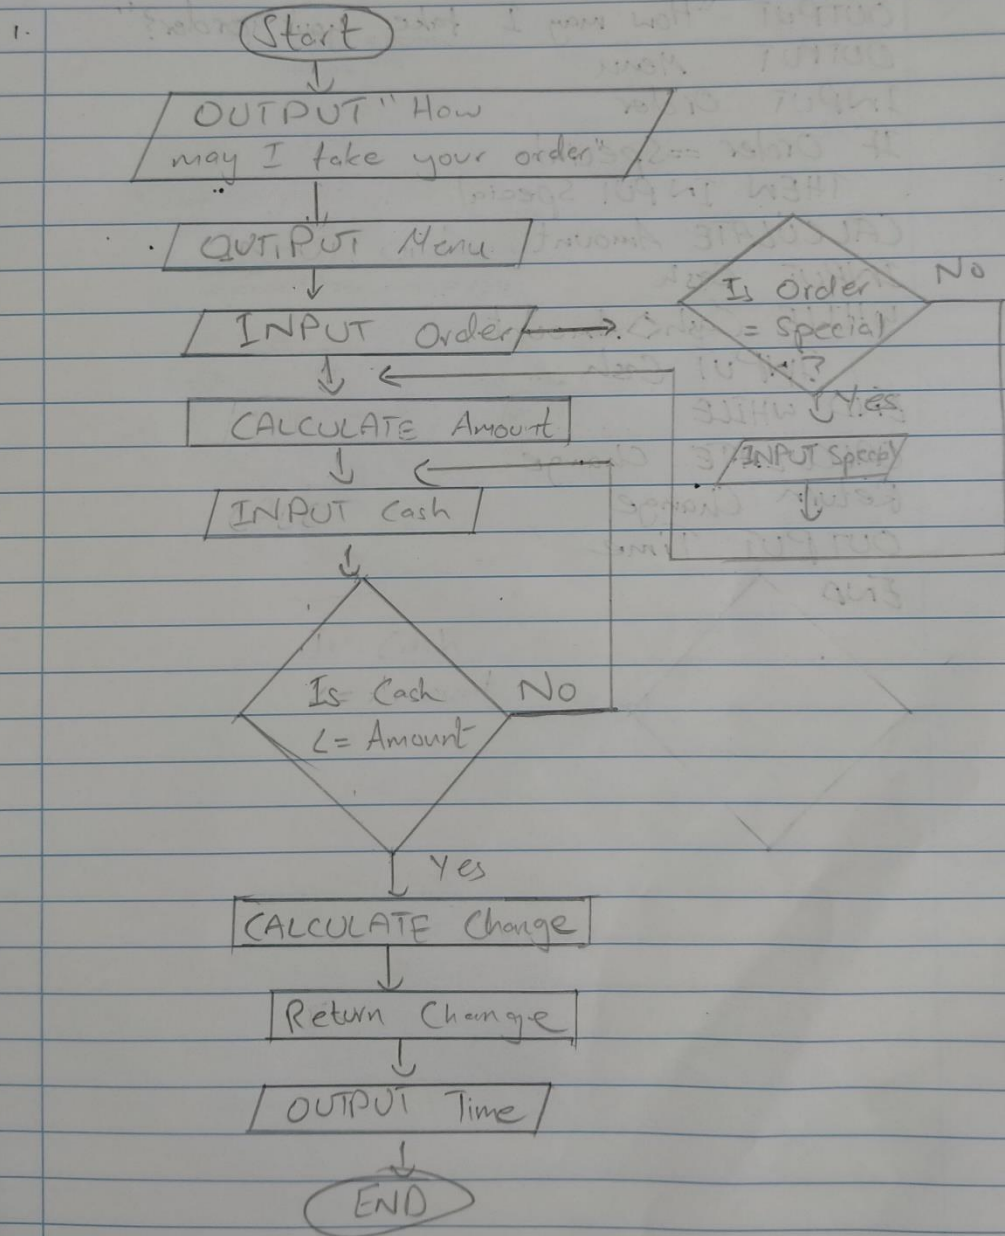 1.
Start
OUTPUT "How
may I take your order"
OUTPUT Menu
INPUT Order
Is Order
= Special
?
No
Yes
INPUT Specify
CALCULATE Amount
INPUT Cash
Is Cash
<= Amount
No
Yes
CALCULATE Change
Return Change
OUTPUT Time
END